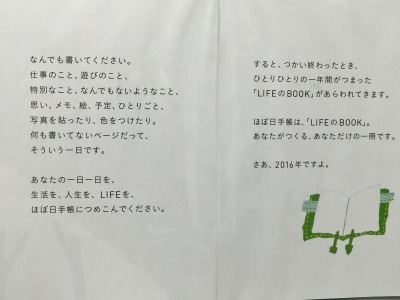 なんでも書いてください。
仕事のこと、遊びのこと、
特別なこと、なんでもないようなこと、
思い、メモ、絵、予定、ひとりごと、
写真を貼ったり、色をつけたり。
何も書いてないページだって、
そういう一日です。
あなたの一日一日を、
生活を、人生を、LIFEを、
ほぼ日手帳につめこんでください。
すると、つかい終わったとき、
ひとりひとりの一年間がつまった
「LIFEのBOOK」があらわれてきます。
ほぼ日手帳は、「LIFEのBOOK」。
あなたがつくる、あなただけの一冊です。
さあ、2016年ですよ。